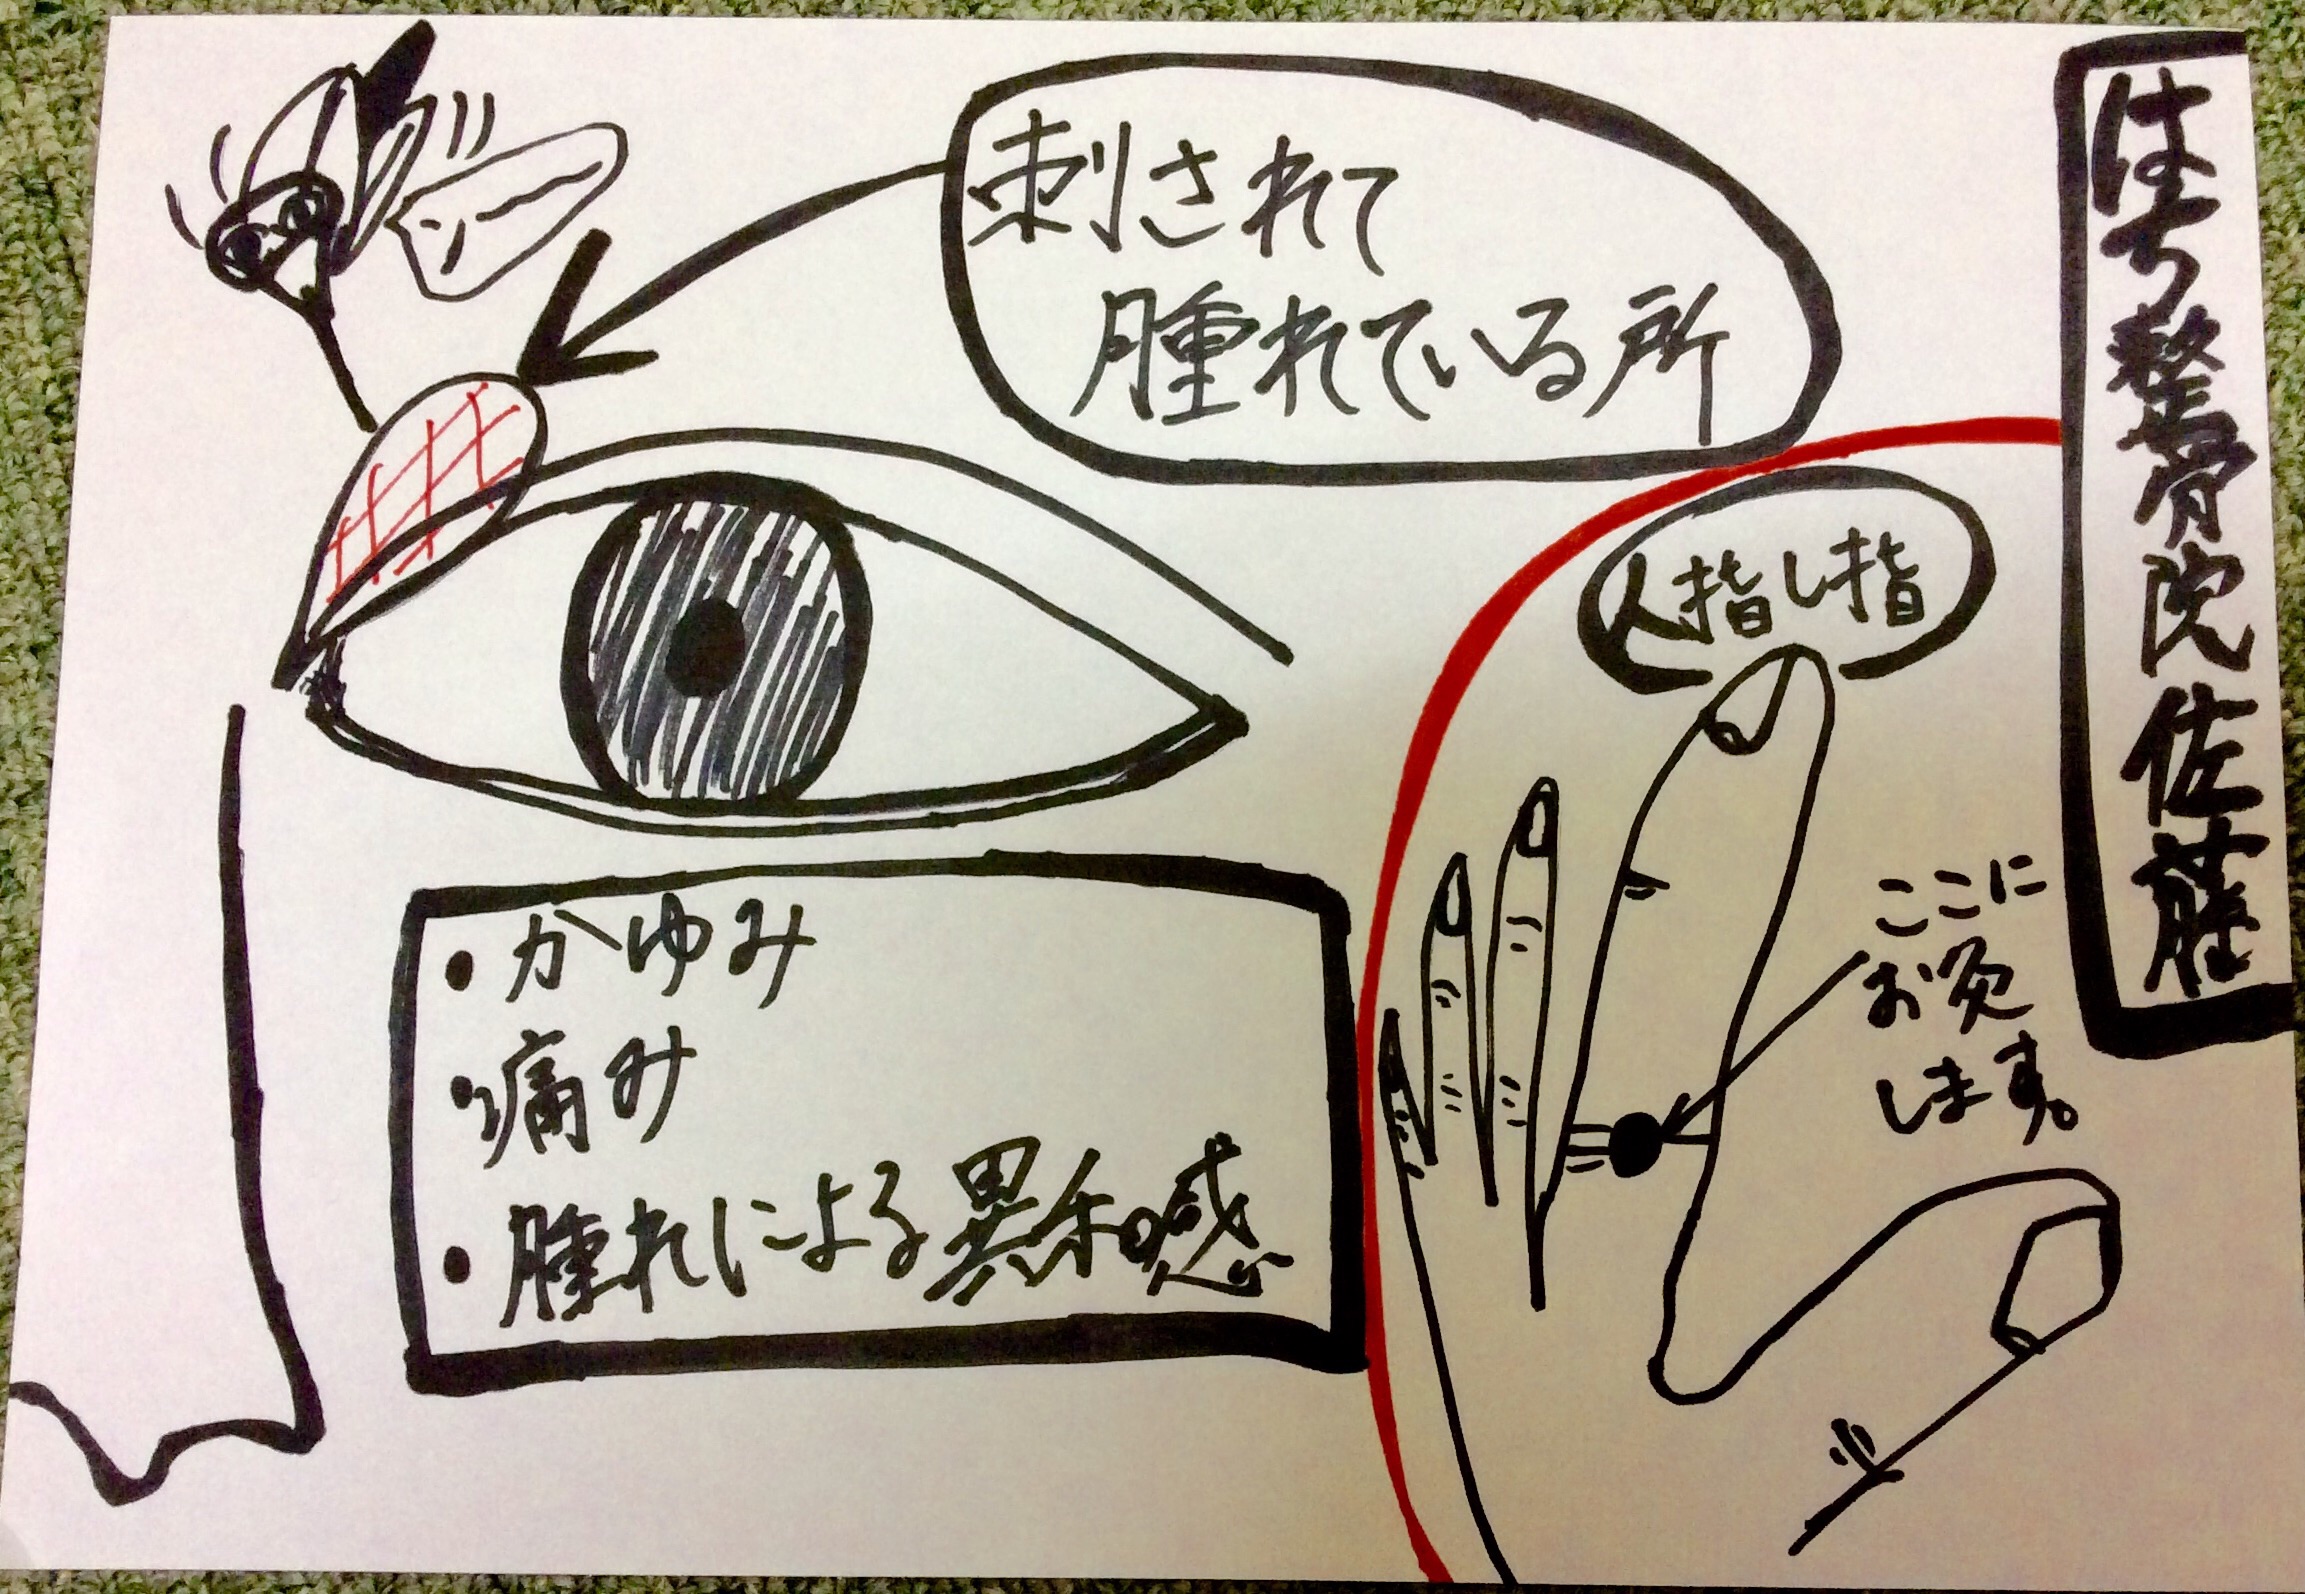 はち整骨院佐藤
刺されて
腫れている所
人指し指
ここに
お灸
します。
・かゆみ
・痛み
・腫れによる異和感